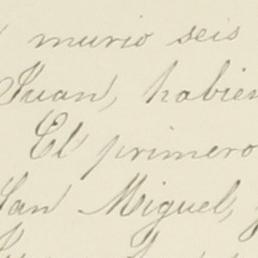 murio seis
Juan, habien
El primero
San Miguel,